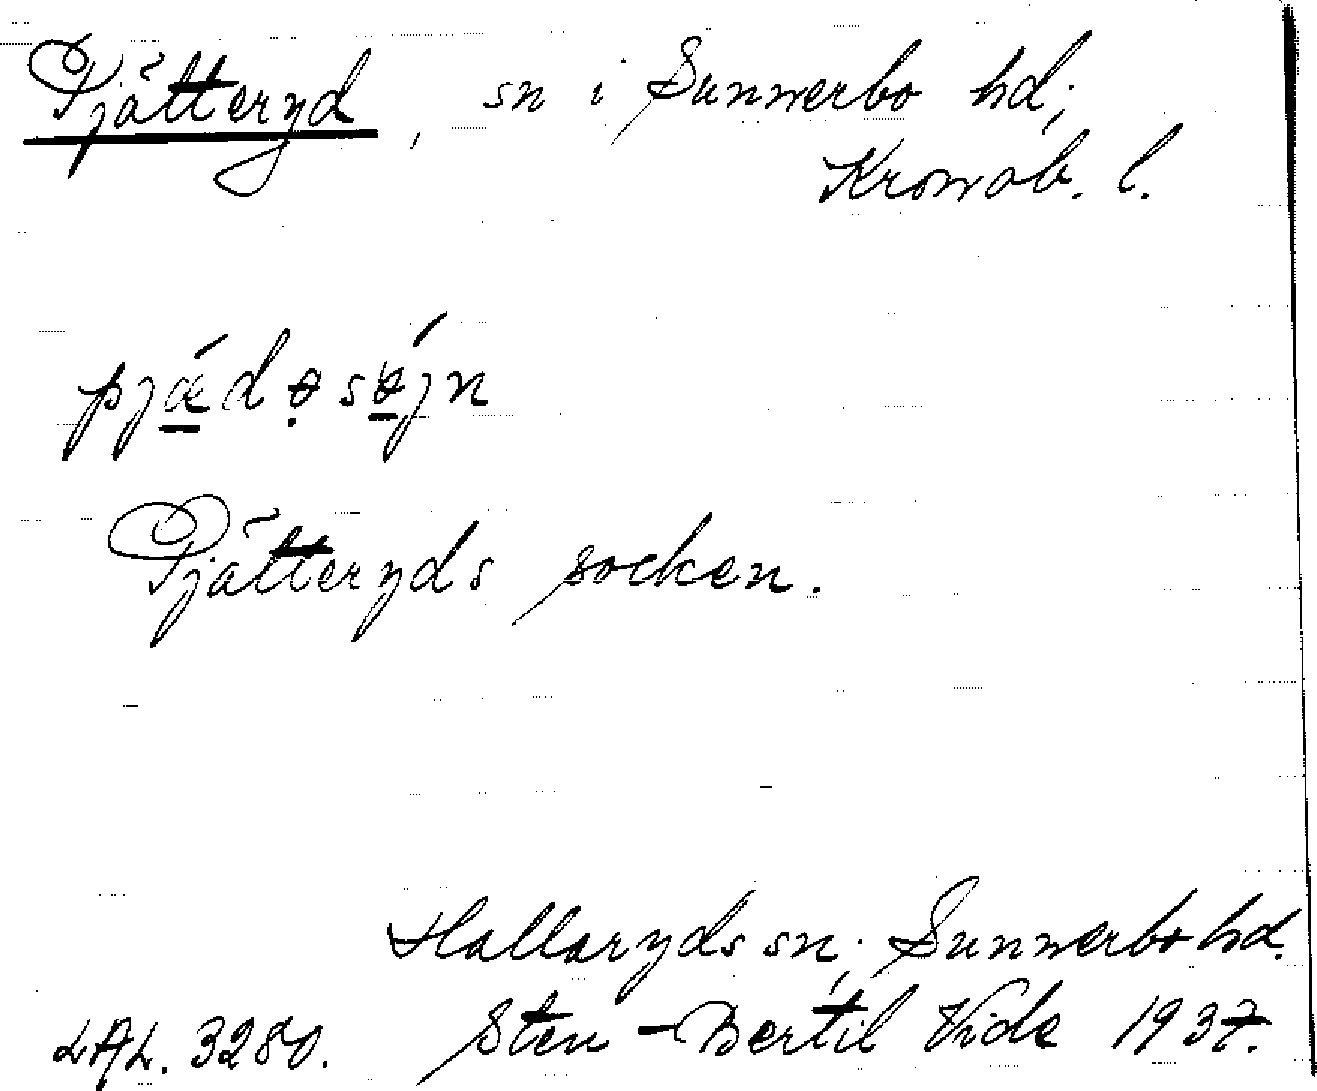 Pjätteryd, sn i Sunnerbo hd;
Kronob. l.
pjǽdɵsɵ́jn
Pjätteryds socken.
Hallaryds sn; Sunnerbo hd.
LAL. 3280. Sten-Bertil Vide 1937.